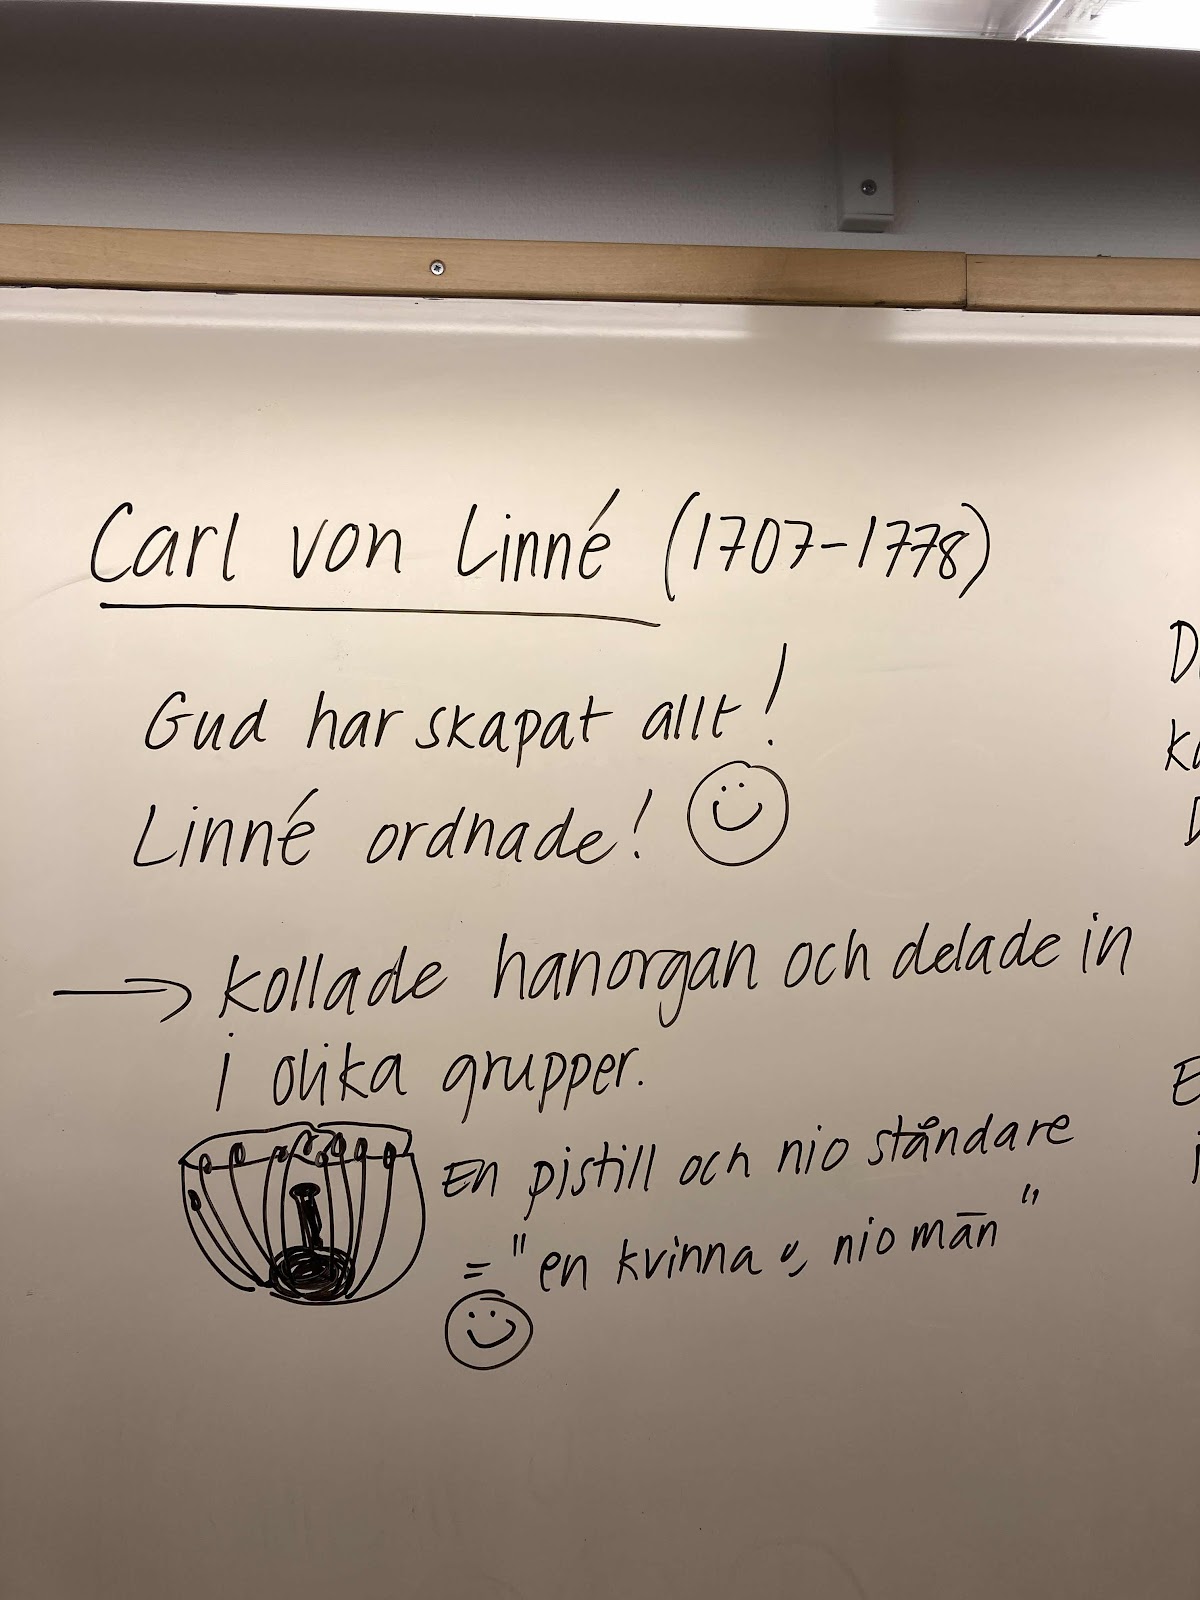 Carl von Linné (1707-1778)
Gud har skapat allt!
Linné ordnade!
→ kollade hanorgan och delade in
i olika grupper.
En pistill och nio ståndare
= "en kvinna o, nio män"